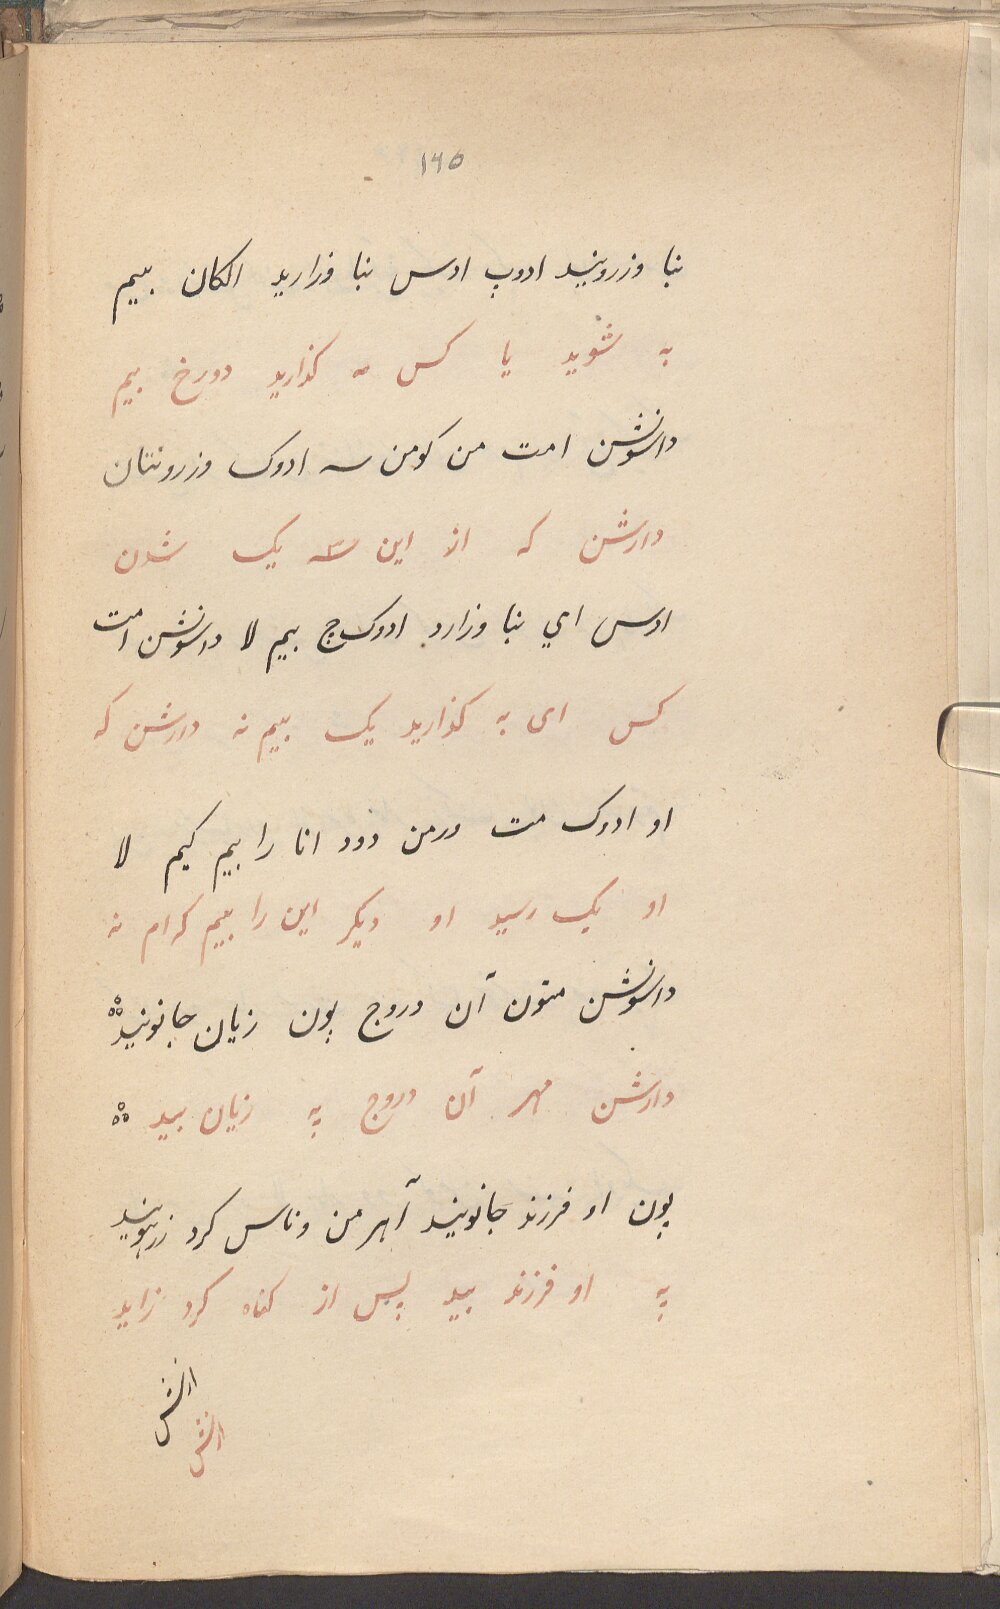 ١٦٥
بنا وزرویند ادوپ ادس بنا وزارید الکان بیم
به شوید یا کس مه گذارید دورخ بیم
داسونشن امت من کومن سه ادوک وزرونتان
دارشن که از این سه یک شدن
ادس ای بنا وزارد ادوک‌ج بیم لا داسونشن امت
کس ای به گذارید یک بیم نه دارشن که
او ادوک مت ورمن دود انا را بیم کیم لا
او یک رسید او دیگر این را بیم کدام نه
داسونشن متون آن دروج پون زیان جانونید
دارشن مهر آن دروج په زیان بید
پون او فرزند جانویند آهرمن وناس کرد زرهویند
په او فرزند بید پس از گناه کرد زاید
انش
انش